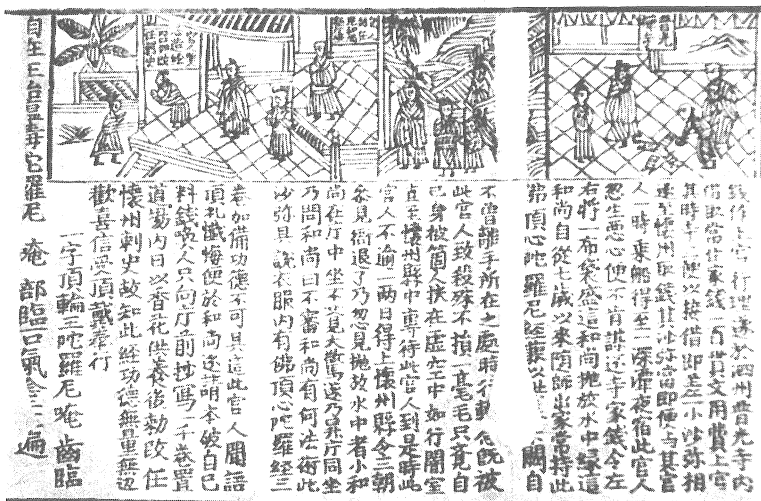 普光寺
錢作上官行理遂於泗州普光寺內
借取常住家錢一百貫文用費上官
其時寺主便以接借即差小沙弥相
逐至懷州取錢其沙弥當即便与其官
人一時乘船得至一深潭夜宿此官人
忽生惡心便不肯謀還寺家錢令左
右將一布袋盛這和尚抛放水中緣這
和尚自從七歲以來隨師出家常持此
佛頂心陀羅尼經兼以 闕自
不曾離手所在之處時行轉念既被
此官人致殺殊不損一毫毛只覺自
己身被箇人扶在虛空中如行闇室
直至懷州縣中專待此官人到是時此
官人不逾一兩日得上懷州縣令三朝
叅見衙退了乃忽見抛放水中者小和
尚在厅中坐不覚大驚遂乃昇厅同坐
乃問和尚曰不審和尚有何法術此
沙弥具說衣服內有佛頂心陀羅經三
卷加備功德不可具述此官人聞語
頂礼懺悔便於和尚邊請本破自己
料錢喚人只向厅前抄寫一千卷置
道場內日以香花供養後勑改任
懷州刺史故知此經功德無量無邊
歡喜信受頂戴奉行
一字頂輪王陀羅尼唵齒臨
自在王治温毒陀羅尼 唵 部臨口氣 遍